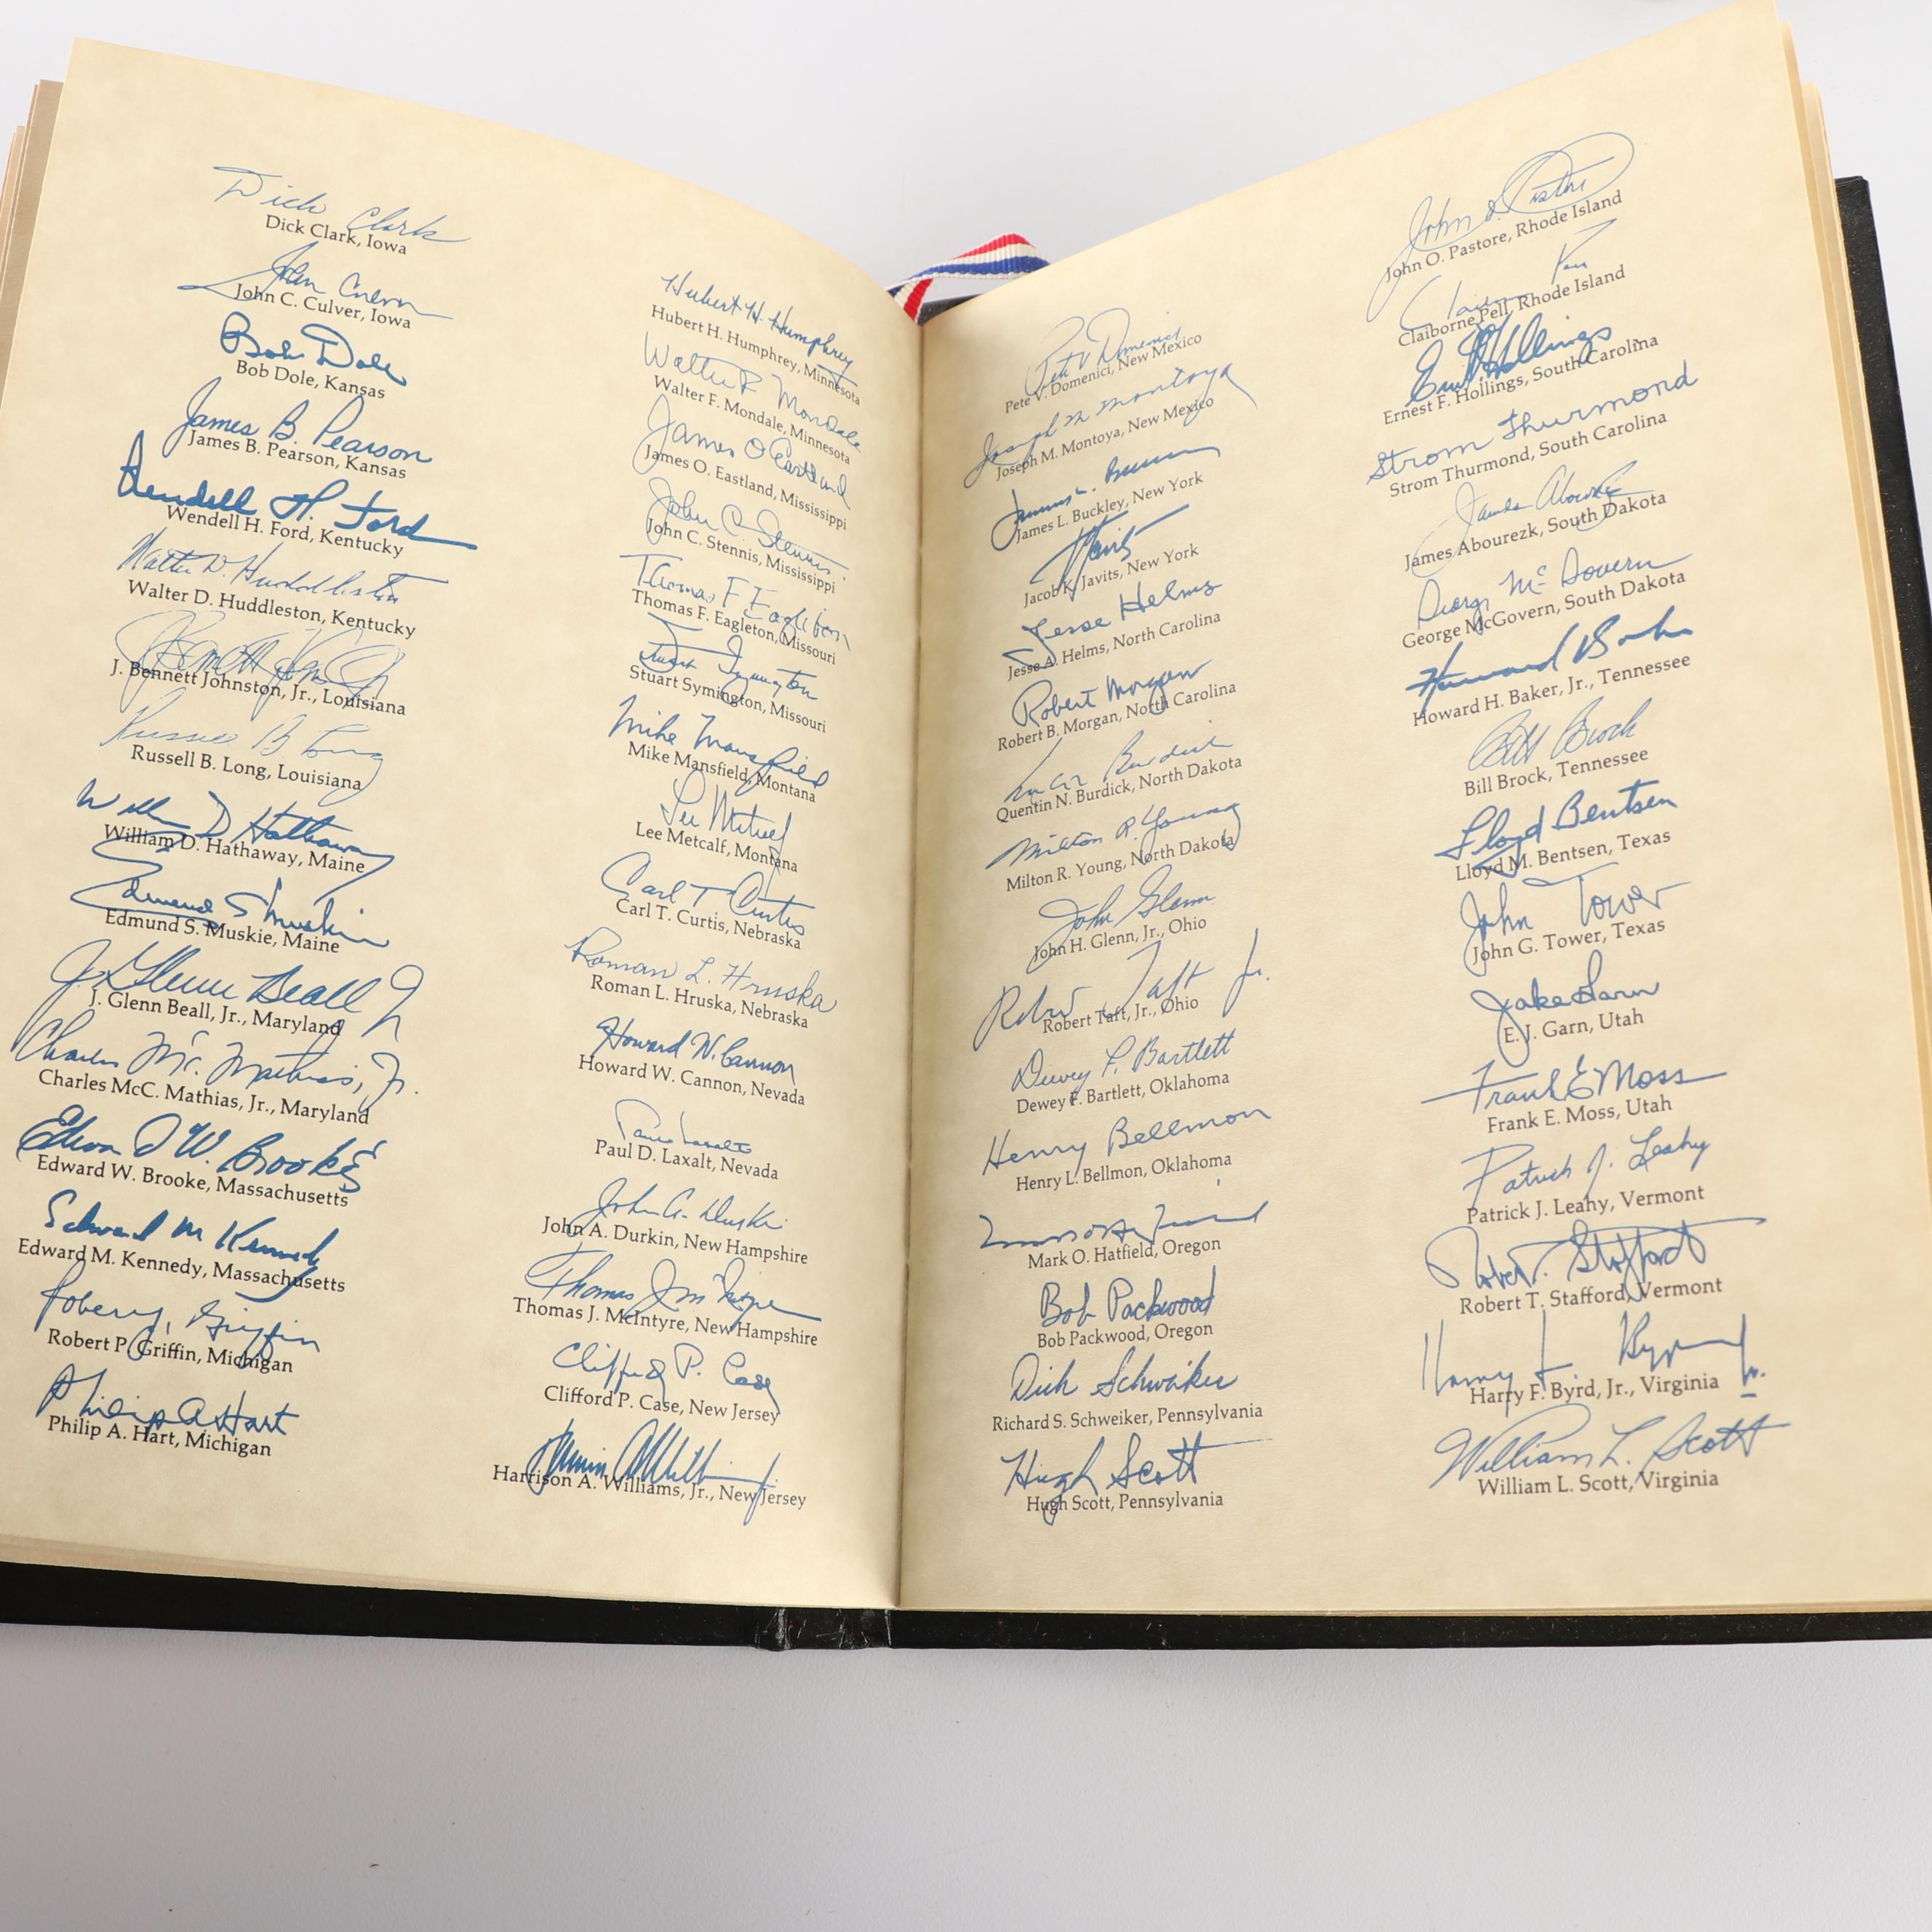 Dick Clark
Dick Clark, Iowa
John Culver
John C. Culver, Iowa
Bob Dole
Bob Dole, Kansas
James B. Pearson
James B. Pearson, Kansas
Wendell H. Ford
Wendell H. Ford, Kentucky
Walter D. Huddleston
Walter D. Huddleston, Kentucky
J. Bennett Johnston, Jr., Louisiana
Russell B. Long
Russell B. Long, Louisiana
William D Hathaway
William D. Hathaway, Maine
Edmund S Muskie
Edmund S. Muskie, Maine
J. Glenn Beall Jr
J. Glenn Beall, Jr., Maryland
Charles McC. Mathias, Jr.
Charles McC. Mathias, Jr., Maryland
Edward W. Brooke
Edward W. Brooke, Massachusetts
Edward M Kennedy
Edward M. Kennedy, Massachusetts
Robert P. Griffin
Robert P. Griffin, Michigan
Philip A Hart
Philip A. Hart, Michigan
Hubert H. Humphrey
Hubert H. Humphrey, Minnesota
Walter F Mondale
Walter F. Mondale, Minnesota
James O Eastland
James O. Eastland, Mississippi
John C. Stennis
John C. Stennis, Mississippi
Thomas F Eagleton
Thomas F. Eagleton, Missouri
Stuart Symington
Stuart Symington, Missouri
Mike Mansfield
Mike Mansfield, Montana
Lee Metcalf
Lee Metcalf, Montana
Carl T Curtis
Carl T. Curtis, Nebraska
Roman L. Hruska
Roman L. Hruska, Nebraska
Howard W. Cannon
Howard W. Cannon, Nevada
Paul Laxalt
Paul D. Laxalt, Nevada
John A. Durkin
John A. Durkin, New Hampshire
Thomas J McIntyre
Thomas J. McIntyre, New Hampshire
Clifford P. Case
Clifford P. Case, New Jersey
Harrison A. Williams, Jr., New Jersey
Pete V Domenici
Pete V. Domenici, New Mexico
Joseph M Montoya
Joseph M. Montoya, New Mexico
James L. Buckley
James L. Buckley, New York
Javits
Jacob K. Javits, New York
Jesse Helms
Jesse A. Helms, North Carolina
Robert Morgan
Robert B. Morgan, North Carolina
Quentin Burdick
Quentin N. Burdick, North Dakota
Milton R. Young
Milton R. Young, North Dakota
John Glenn
John H. Glenn, Jr., Ohio
Robert Taft Jr.
Robert Taft, Jr., Ohio
Dewey F. Bartlett
Dewey F. Bartlett, Oklahoma
Henry Bellmon
Henry L. Bellmon, Oklahoma
Mark O. Hatfield
Mark O. Hatfield, Oregon
Bob Packwood
Bob Packwood, Oregon
Dick Schweiker
Richard S. Schweiker, Pennsylvania
Hugh Scott
Hugh Scott, Pennsylvania
John O. Pastore
John O. Pastore, Rhode Island
Claiborne Pell
Claiborne Pell, Rhode Island
Ernest F. Hollings
Ernest F. Hollings, South Carolina
Strom Thurmond
Strom Thurmond, South Carolina
James Abourezk
James Abourezk, South Dakota
George McGovern
George McGovern, South Dakota
Howard Baker
Howard H. Baker, Jr., Tennessee
Bill Brock
Bill Brock, Tennessee
Lloyd Bentsen
Lloyd M. Bentsen, Texas
John Tower
John G. Tower, Texas
Jake Garn
E. J. Garn, Utah
Frank E Moss
Frank E. Moss, Utah
Patrick J. Leahy
Patrick J. Leahy, Vermont
Robert T. Stafford
Robert T. Stafford, Vermont
Harry F Byrd Jr.
Harry F. Byrd, Jr., Virginia
William L. Scott
William L. Scott, Virginia